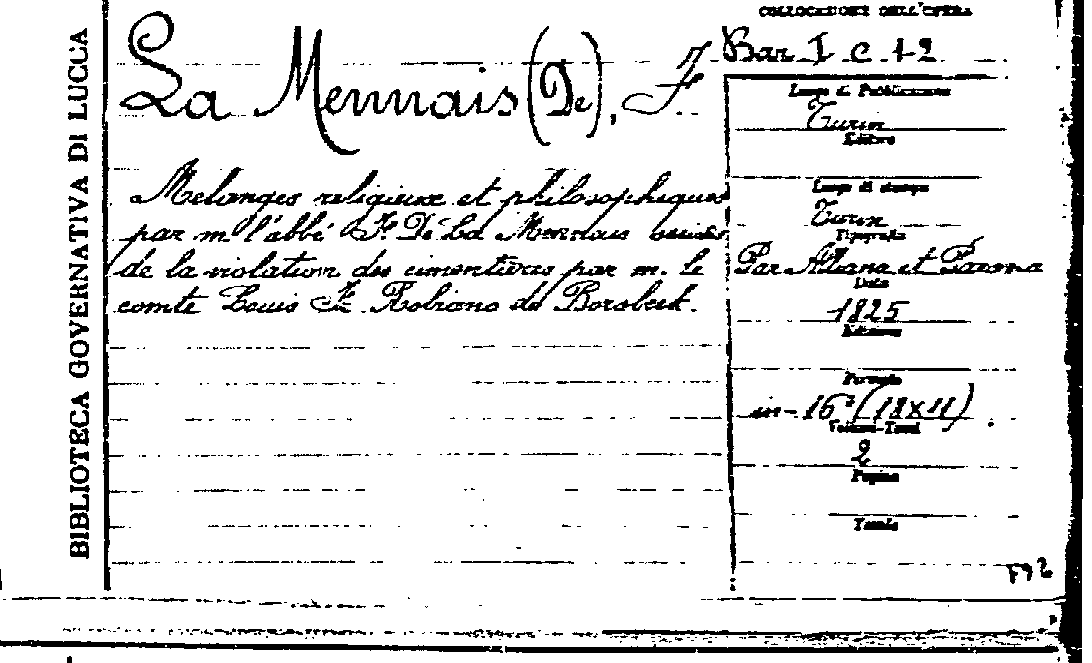 BIBLIOTECA GOVERNATIVA DI LUCCA
La Mennais (De), F.
Melanges religieux et philosophiques
par m l'abbé F. De La Mennais suivis
de la violation des cimentières par m. le
comte Louis F. Robiano de Borsbeek.
COLLOCAZIONE DELL'OPERA
Bar I c 12
Luogo di Pubblicazione
Turin
Editore
Luogo di stampa
Turin
Tipografia
Par Alliana et Paroma
Data
1825
Edizione
Formato
in-16° (18x11).
Volumi-Tomi
2
Pagine
Tavole